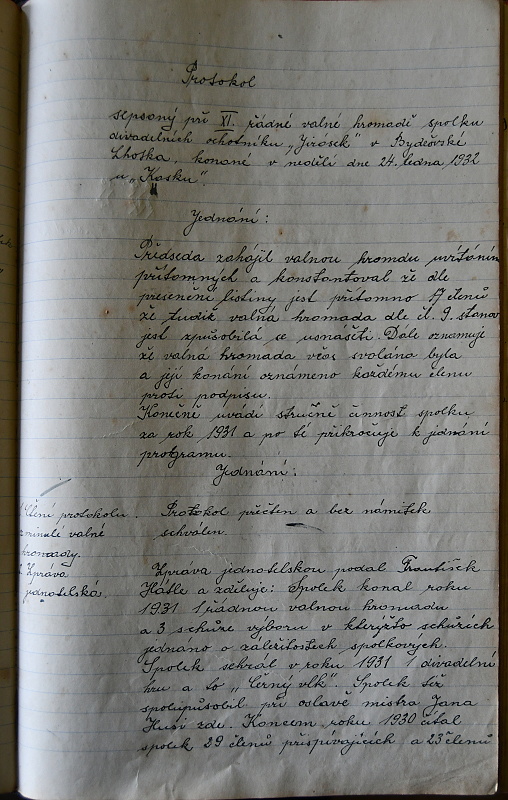 Protokol
sepsaný při XI. řádné valné hromadě spolku
divadelních ochotníku „Jirásek" v Bydčovské
Lhotka, konané v neděli dne 24. ledna 1932
u „Kasku".
Jednání:
Předseda zahájil valnou hromdu uvítáním
přítomných a konstantoval že dle
presenčné listiny jest přítomno 17 členů
že tudíž valná hromada dle čl. 9. stanov
jest způsobilá se usnášeti. Dále oznamuje
že valná hromada včas svolána byla
a její konání oznámeno každému členu
proti podpisu.
Konečně uvádí stručně činnost spolku
za rok 1931 a po té přikročuje k jednání
programu.
Jednání:
Čtení protokolu
minulé valné
hromady.
Protokol přečten a bez námitek
schválen.
Zpráva
jednatelská.
Zpráva jednatelskou podal František
Hátle a zděluje: Spolek konal roku
1931 1 řádnou valnou hromadu
a 3 schůze výboru v kterýžto schůzích
jednáno o záležitostech spolkových.
Spolek sehrál v roku 1931 1 divadelní
hru a to „Černý vlk". Spolek též
spolupůsobil při oslavě mistra Jana
Husi zde. Koncem roku 1930 čítal
spolek 29 členů přispívajících a 23 členů